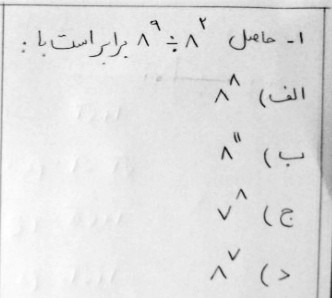 ۱- حاصل ۸^۹ ÷ ۸^۲ برابر است با :
الف) ۸^۸
ب) ۸^۱۱
ج) ۷^۸
د) ۸^۷